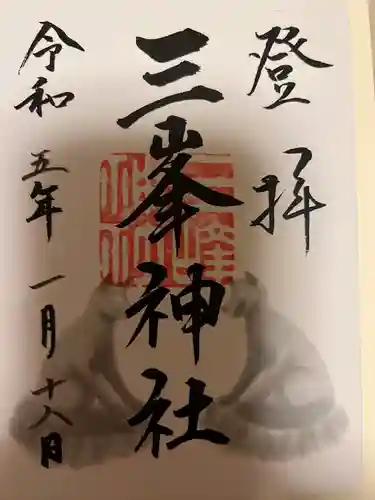 登拝
三峯神社
令和五年一月十八日